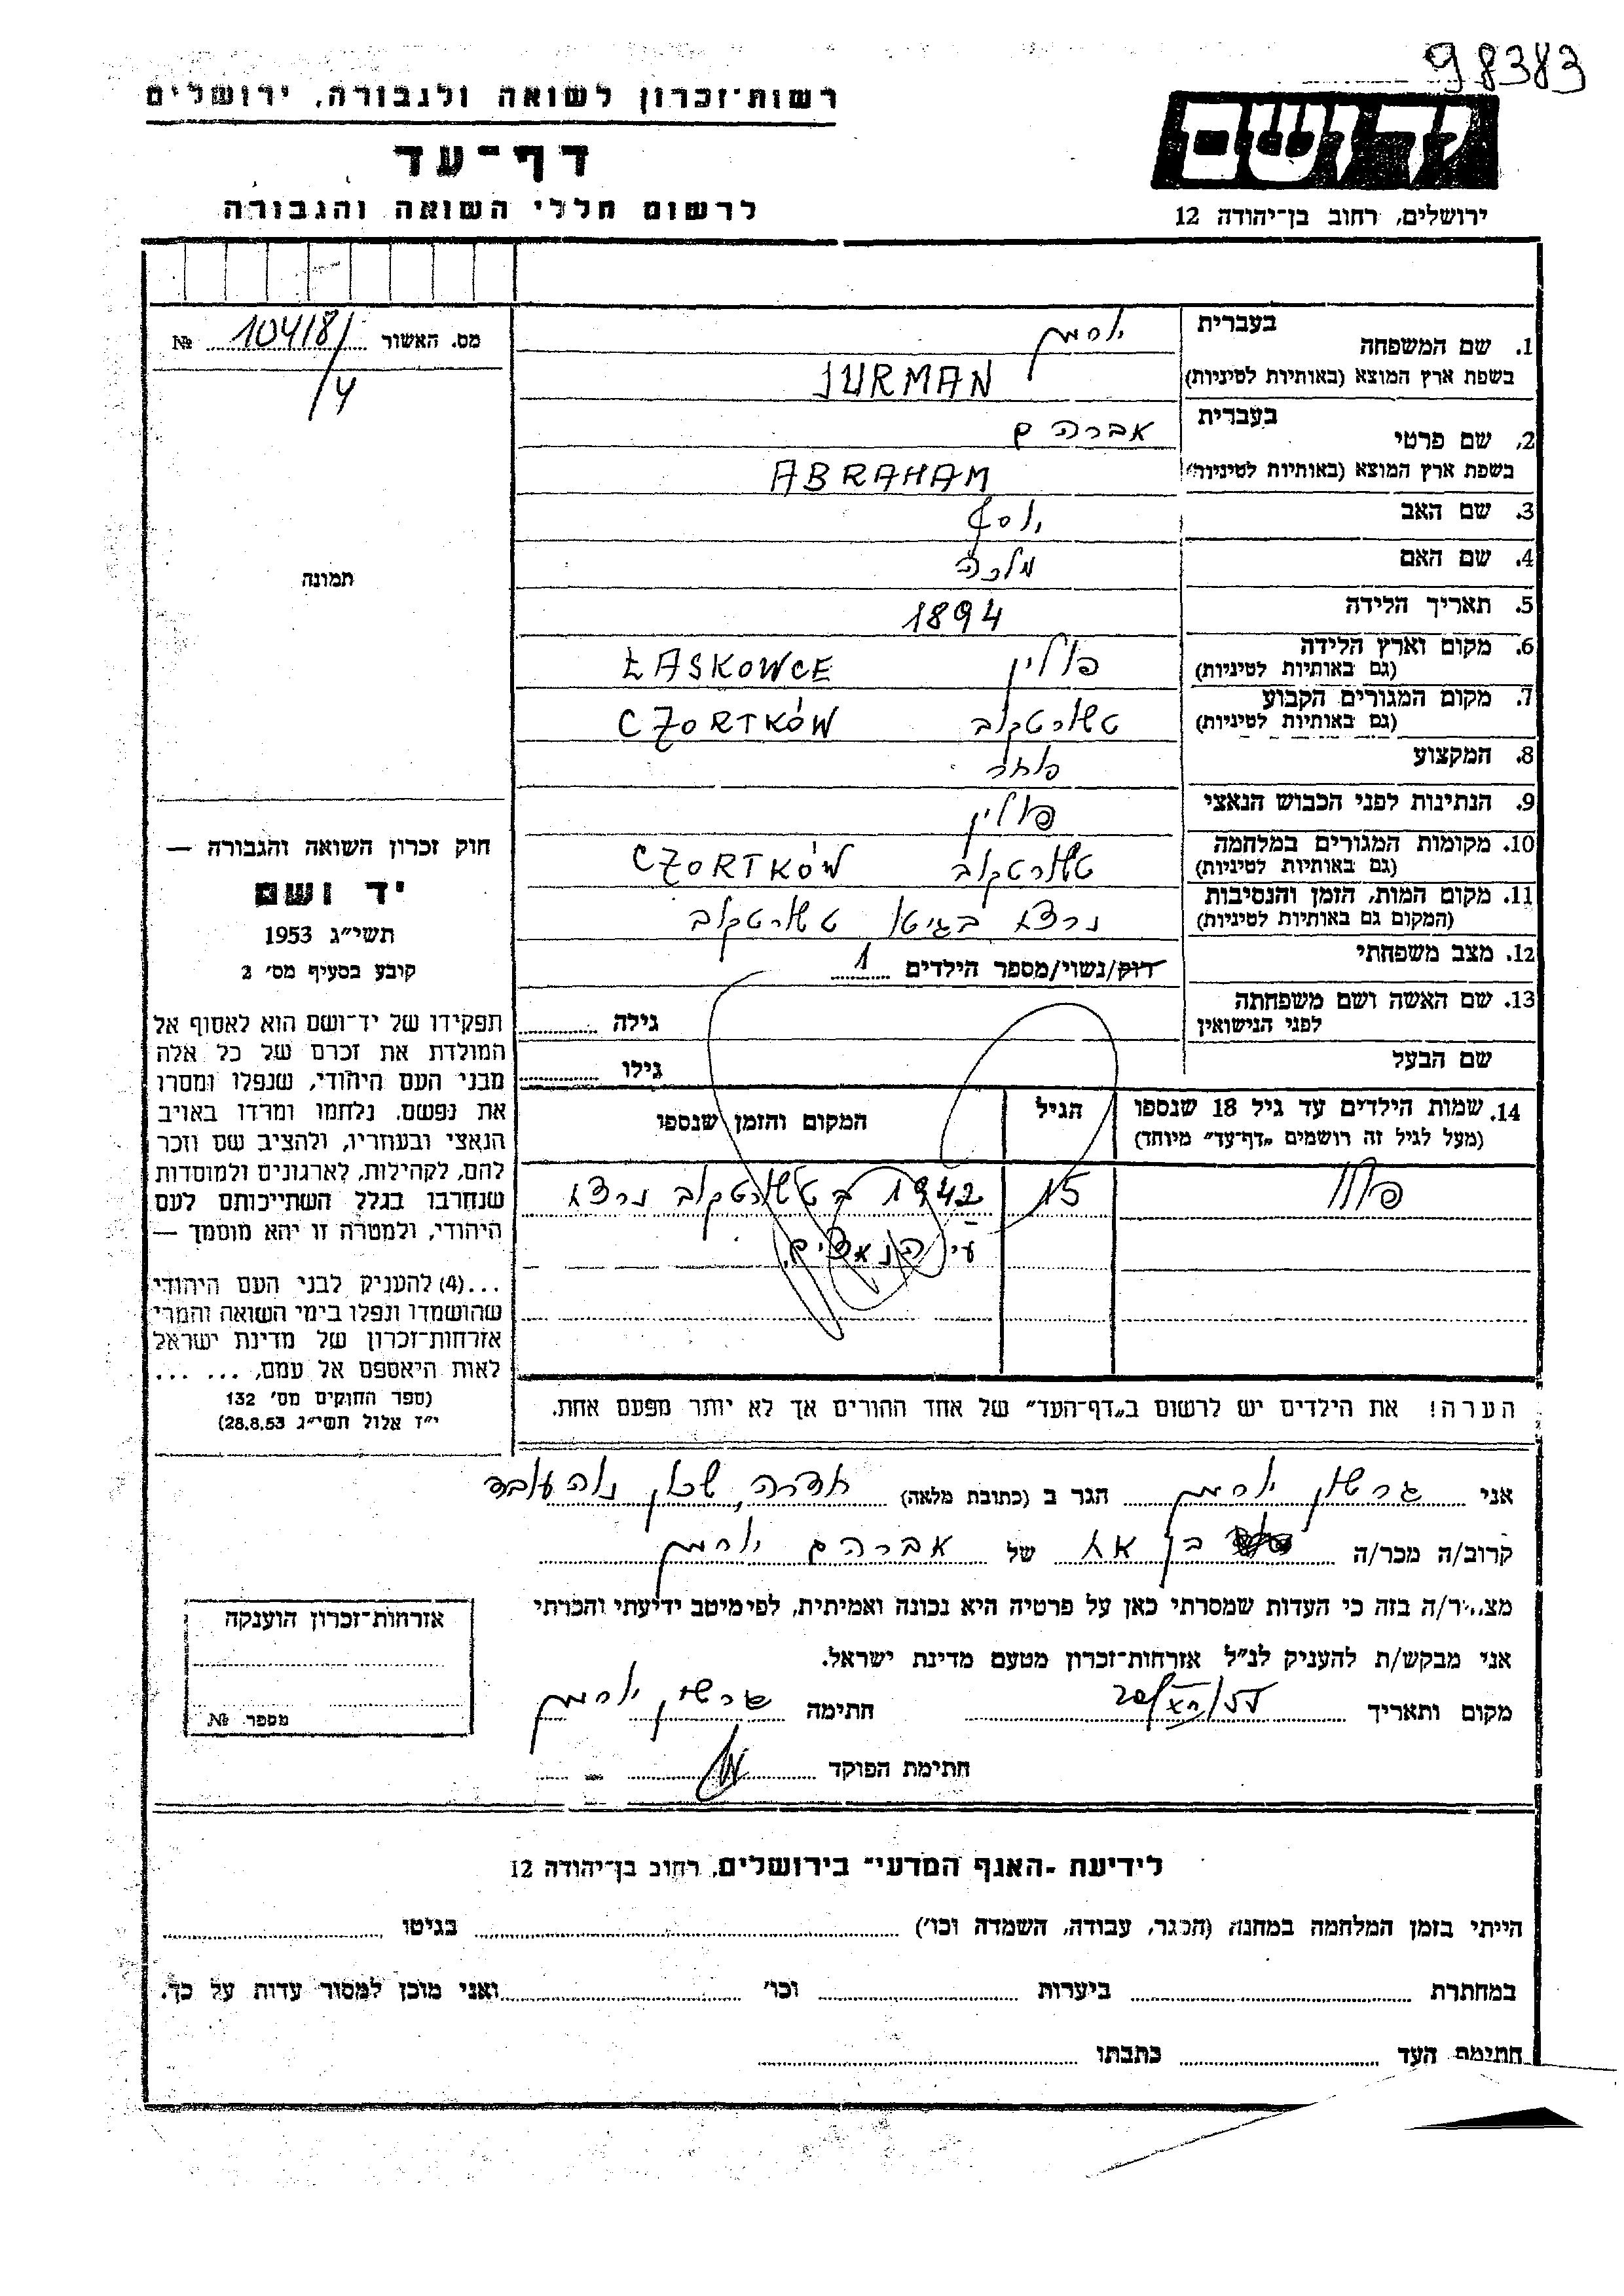 98383
רשות־זכרון לשואה ולגבורה, ירושלים
יד ושם
דף־עד
לרשום חללי השואה והגבורה
ירושלים, רחוב בן־יהודה 12
מס. האשור 10418/ №
4
תמונה
1. שם המשפחה
בעברית יורמן
בשפת ארץ המוצא (באותיות לטיניות) JURMAN
2. שם פרטי
בעברית אברהם
בשפת ארץ המוצא (באותיות לטיניות) ABRAHAM
3. שם האב יוסף
4. שם האם מלכה
5. תאריך הלידה 1894
6. מקום וארץ הלידה פולין ŁASKOWCE
(גם באותיות לטיניות)
7. מקום המגורים הקבוע טשורטקוב CZORTKÓW
(גם באותיות לטיניות)
8. המקצוע סוחר
9. הנתינות לפני הכבוש הנאצי פולין
10. מקומות המגורים במלחמה טשורטקוב CZORTKÓW
(גם באותיות לטיניות)
11. מקום המות, הזמן והנסיבות נרצח בגיטו טשורטקוב
(המקום גם באותיות לטיניות)
12. מצב משפחתי רוק/נשוי/מספר הילדים 1
13. שם האשה ושם משפחתה גילה
לפני הנישואין
שם הבעל גילו
14. שמות הילדים עד גיל 18 שנספו הגיל המקום והזמן שנספו
(מעל לגיל זה רושמים „דף־עד״ מיוחד)
15 1942 ב טשורטקוב נרצח
ע״י הנאצים.
הערה! את הילדים יש לרשום ב„דף־העד״ של אחד ההורים אך לא יותר מפעם אחת.
חוק זכרון השואה והגבורה —
יד ושם
תשי״ג 1953
קובע בסעיף מס׳ 2
תפקידו של יד־ושם הוא לאסוף אל
המולדת את זכרם של כל אלה
מבני העם היהודי, שנפלו ומסרו
את נפשם, נלחמו ומרדו באויב
הנאצי ובעוזריו, ולהציב שם וזכר
להם, לקהילות, לארגונים ולמוסדות
שנחרבו בגלל השתייכותם לעם
היהודי, ולמטרה זו יהא מוסמך —
...(4) להעניק לבני העם היהודי
שהושמדו ונפלו בימי השואה והמרי
אזרחות־זכרון של מדינת ישראל
לאות היאספם אל עמם, ... ...
(ספר החוקים מס׳ 132
י״ז אלול תשי״ג 28.8.53)
אני גרשון יורמן הגר ב (כתובת מלאה) חדרה, שכון נוה עובד
קרוב/ה מכר/ה בן אח של אברהם יורמן
מצהיר/ה בזה כי העדות שמסרתי כאן על פרטיה היא נכונה ואמיתית, לפי מיטב ידיעתי והכרתי
אני מבקש/ת להעניק לנ״ל אזרחות־זכרון מטעם מדינת ישראל.
מקום ותאריך חתימה גרשון יורמן
חתימת הפוקד
אזרחות־זכרון הוענקה
מספר №
לידיעת „האגף המדעי״ בירושלים, רחוב בן־יהודה 12
הייתי בזמן המלחמה במחנה (הסגר, עבודה, השמדה וכו׳) בגיטו
במחתרת ביערות וכו׳ ואני מוכן למסור עדות על כך.
חתימת העד כתבתו